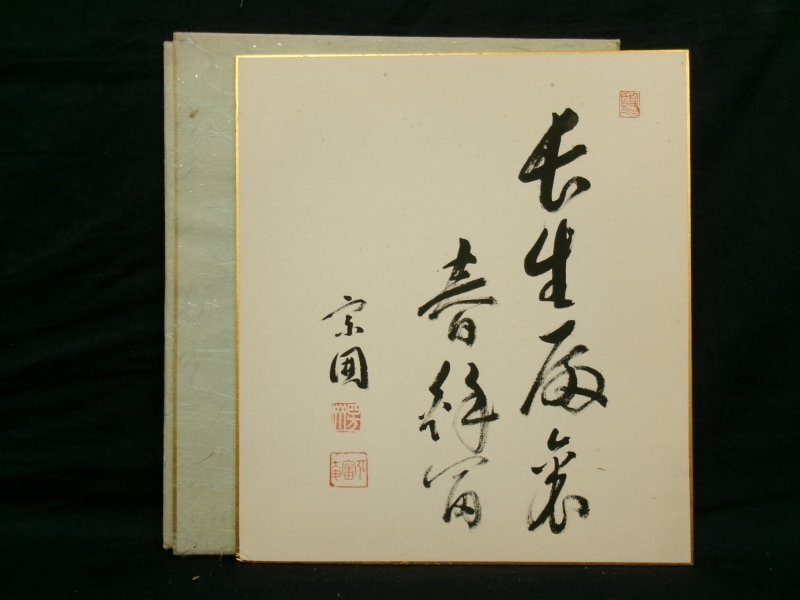 長生殿裏
春秋富
宗